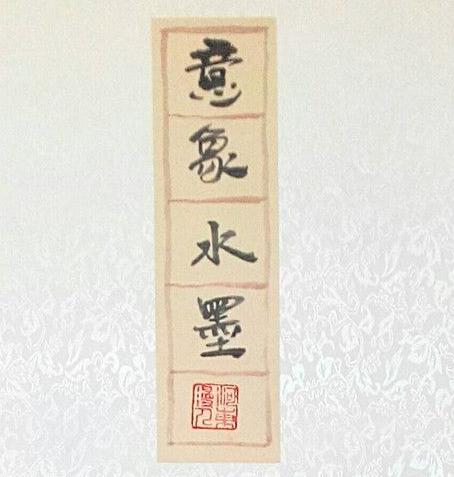 意象水墨